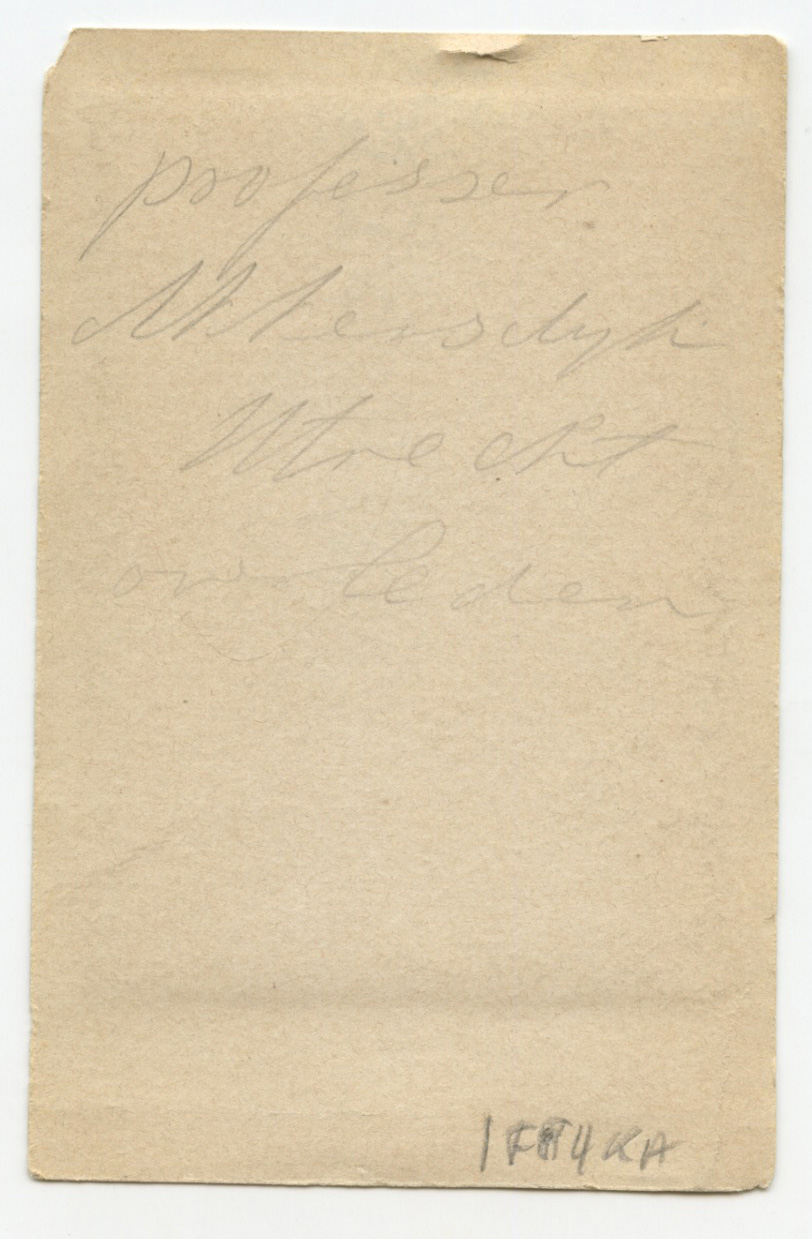 professer
Akkersdyk
Utrecht
overleden